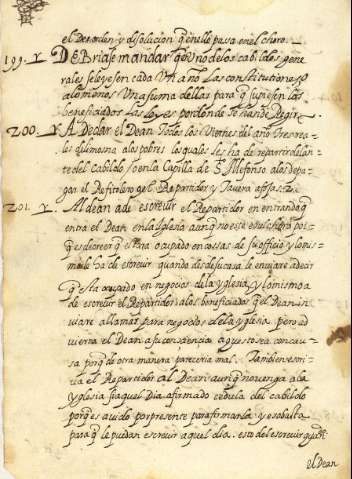 el Desorden y disolucion q en ello pasa en el choro.
199. Y DEbriase mandar q en vno de los cabildos gene-
rales se leyesen cada VA año las constitutiones
alomenos Vna suma dellas para q supiesen los
beneficiados las leyes por donde se han de Regir.
200. Y A Dedar el Dean todos los Viernes del año Tres rea-
les de limosna a los pobres los quales les ha de repartir delan-
te del Cabildo so en la Capilla de S. Illefonso a los de pa-
gar el Refitolero y el Repartidor y
201. Y Al dean a de escreuir el Repartidor en entrando q
entra el Dean en la Iglesia aunq no este en el choro por-
q es de creer q esta ocupado en cossas de su officio y lo mis-
mo le ha de escreuir quando desde su casa le enviare a decir
q esta ocupado en negocios de la yglesia, y lo mismo a
de escreuir el Repartidor a los beneficiados q el Dean en-
viare a llamar para negocios de la yglesia. pero ad
uierta el Dean a su consciencia a questo sea con cau-
sa porq de otra manera pareceria mal. Tambien escri-
va el Repartidor al Dean aunq no venga a la
yglesia si aquel dia a firmado cedula del cabildo
porq es auido por presente para firmarla y eso basta
para q le puedan escreuir aquel dia. esto del escreuir
el Dean